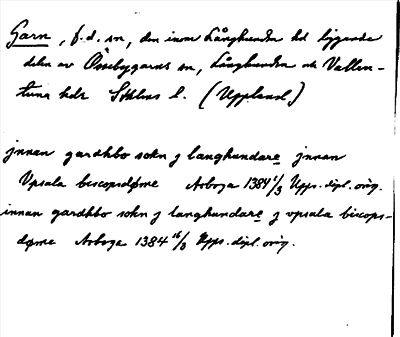 Garn, f.d. sn, den inom Långhundra hd liggande
delen av Össebygarns sn, Långhundra och Vallen-
tuna hdr Sthlms l. (Uppland)
jnnan gardhbo sokn j langhundare jnnan
Vpsala biscopsdøme Arboga 1384 1/3 Upps. dipl. orig.
innan gardhbo sokn j langhundare j vpsala biscops-
døme Arboga 1384 16/3 Upps. dipl. orig.